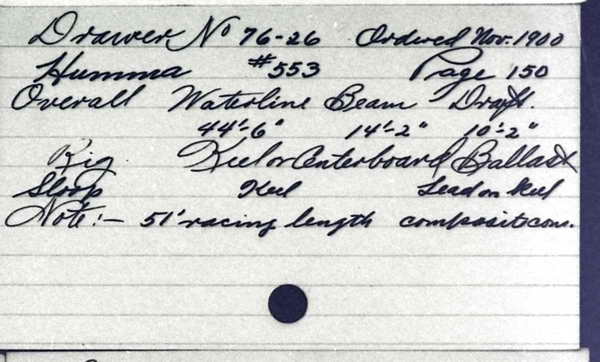 Drawer No 76-26 Ordered Nov. 1900
Humma #553 Page 150
Overall Waterline Beam Draft.
44'-6" 14'-2" 10'-2"
Rig. Keel or Centerboard Ballast
Sloop Keel Lead on Keel
Note:- 51' racing length composit cons.